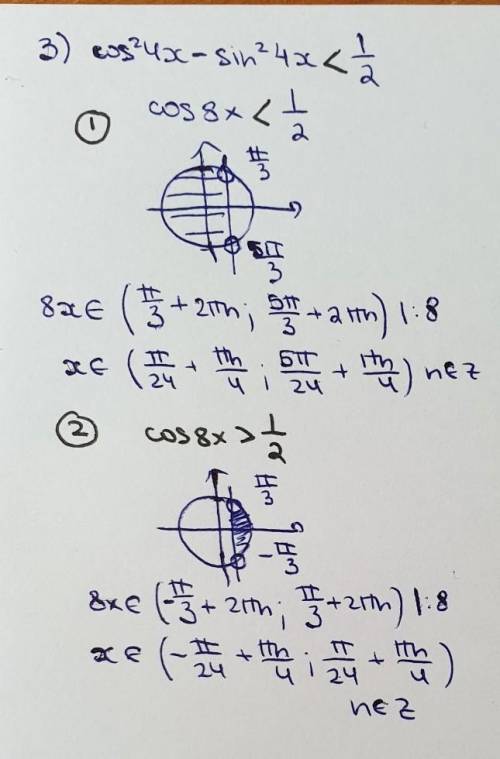 3) cos²4x - sin²4x < 1/2
① cos8x < 1/2
π/3
5π/3
8x ∈ (π/3 + 2πn; 5π/3 + 2πn) |:8
x ∈ (π/24 + πn/4; 5π/24 + πn/4) n∈Z
② cos8x > 1/2
π/3
-π/3
8x ∈ (-π/3 + 2πn; π/3 + 2πn) |:8
x ∈ (-π/24 + πn/4; π/24 + πn/4)
n∈Z